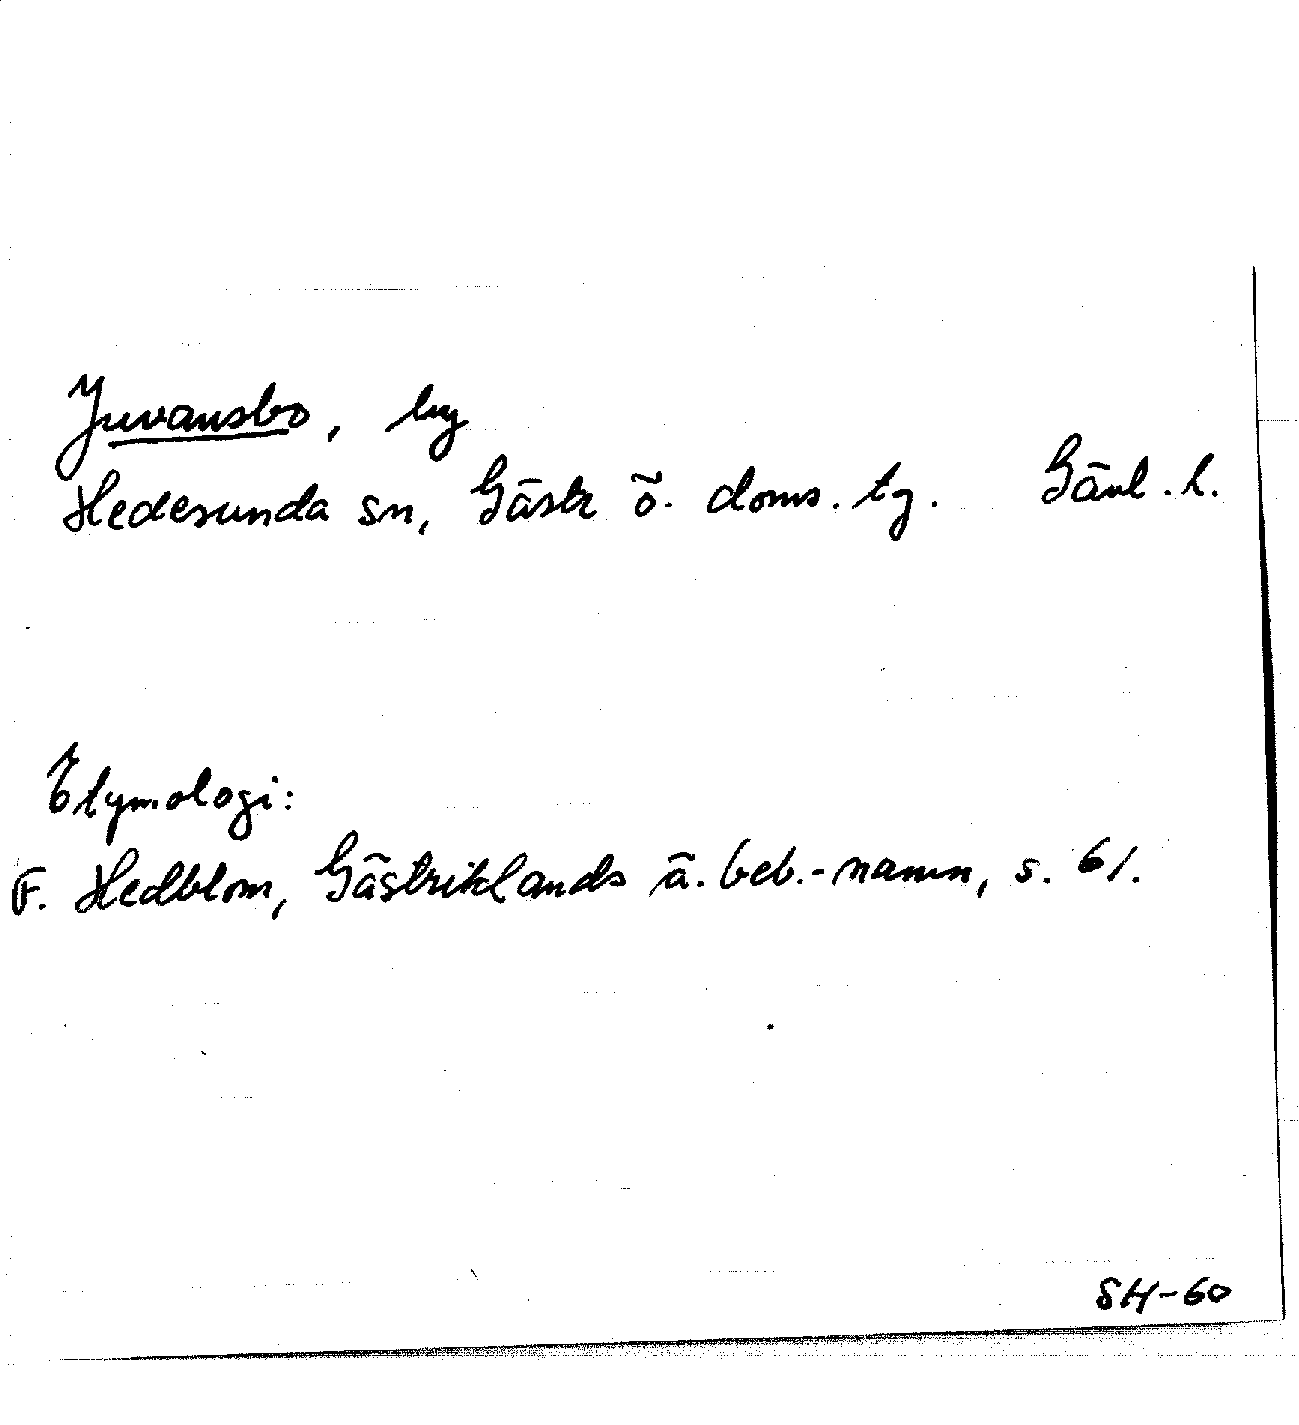 Juvansbo, by
Hedesunda sn, Gästr ö. doms. tg. Gävl. l.
Etymologi:
F. Hedblom, Gästriklands ä. beb.-namn, s. 61.
SH-60